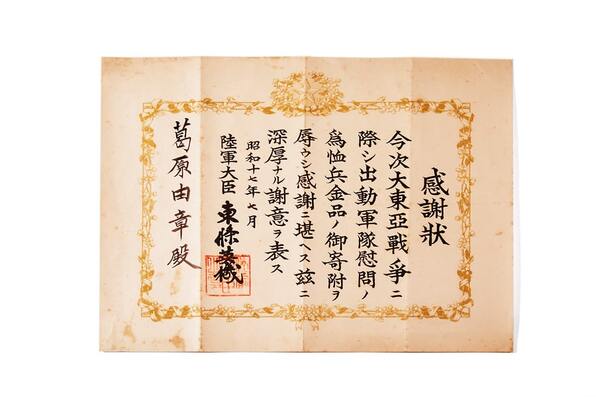 感謝狀
今次大東亞戰爭ニ
際シ出動軍隊慰問ノ
爲恤兵金品ノ御寄附ヲ
辱ウシ感謝ニ堪ヘス茲ニ
深厚ナル謝意ヲ表ス
昭和十七年七月
陸軍大臣 東條英機
葛原由章殿